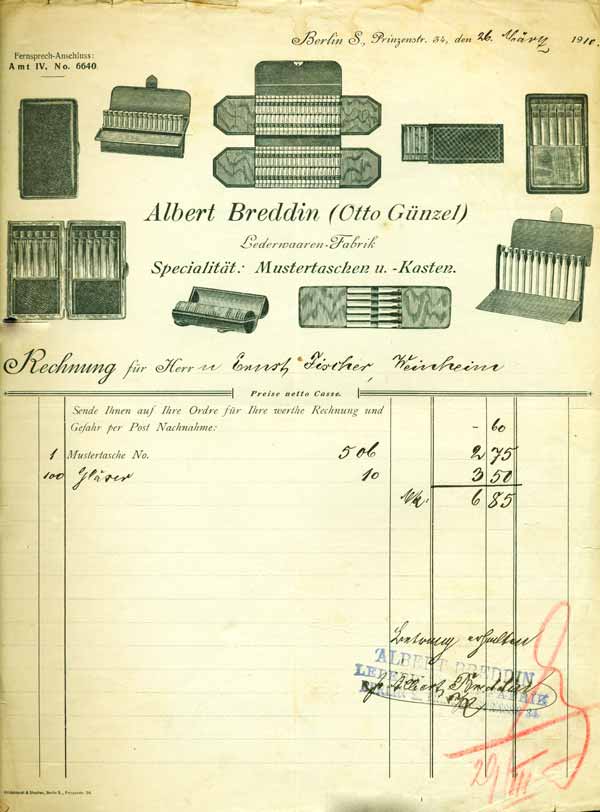 Berlin S., Prinzenstr. 34, den 26. März 1910.
Fernsprech-Anschluss:
Amt IV, No. 6640.
Albert Breddin (Otto Günzel)
Lederwaaren-Fabrik
Specialität: Mustertaschen u. -Kasten.
Rechnung für Herrn Ernst Fischer, Weinheim
Preise netto Cassa.
Sende Ihnen auf Ihre Ordre für Ihre werthe Rechnung und
Gefahr per Post Nachnahme: - 60
1 Mustertasche No. 506 2 75
100 Gläser 10 3 50
Mk. 6 85
Betrag erhalten
ALBERT BREDDIN
Albert Breddin
29/III